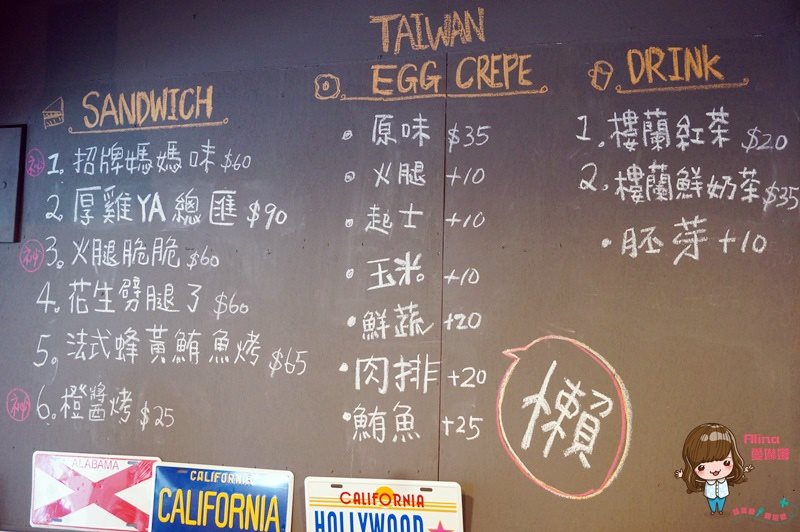 TAIWAN
EGG CREPE
SANDWICH
神 1. 招牌媽媽味 $60
2. 厚雞YA總匯 $90
神 3. 火腿脆脆 $60
4. 花生劈腿了 $60
5. 法式蜂黃鮪魚烤 $65
神 6. 橙醬烤 $25
• 原味 $35
• 火腿 +10
• 起士 +10
• 玉米 +10
• 鮮蔬 +20
• 肉排 +20
• 鮪魚 +25
DRINK
1. 樓蘭紅茶 $20
2. 樓蘭鮮奶茶 $35
• 胚芽 +10
懶
ALABAMA
CALIFORNIA
CALIFORNIA
CALIFORNIA
HOLLYWOOD
Alina
愛琳娜